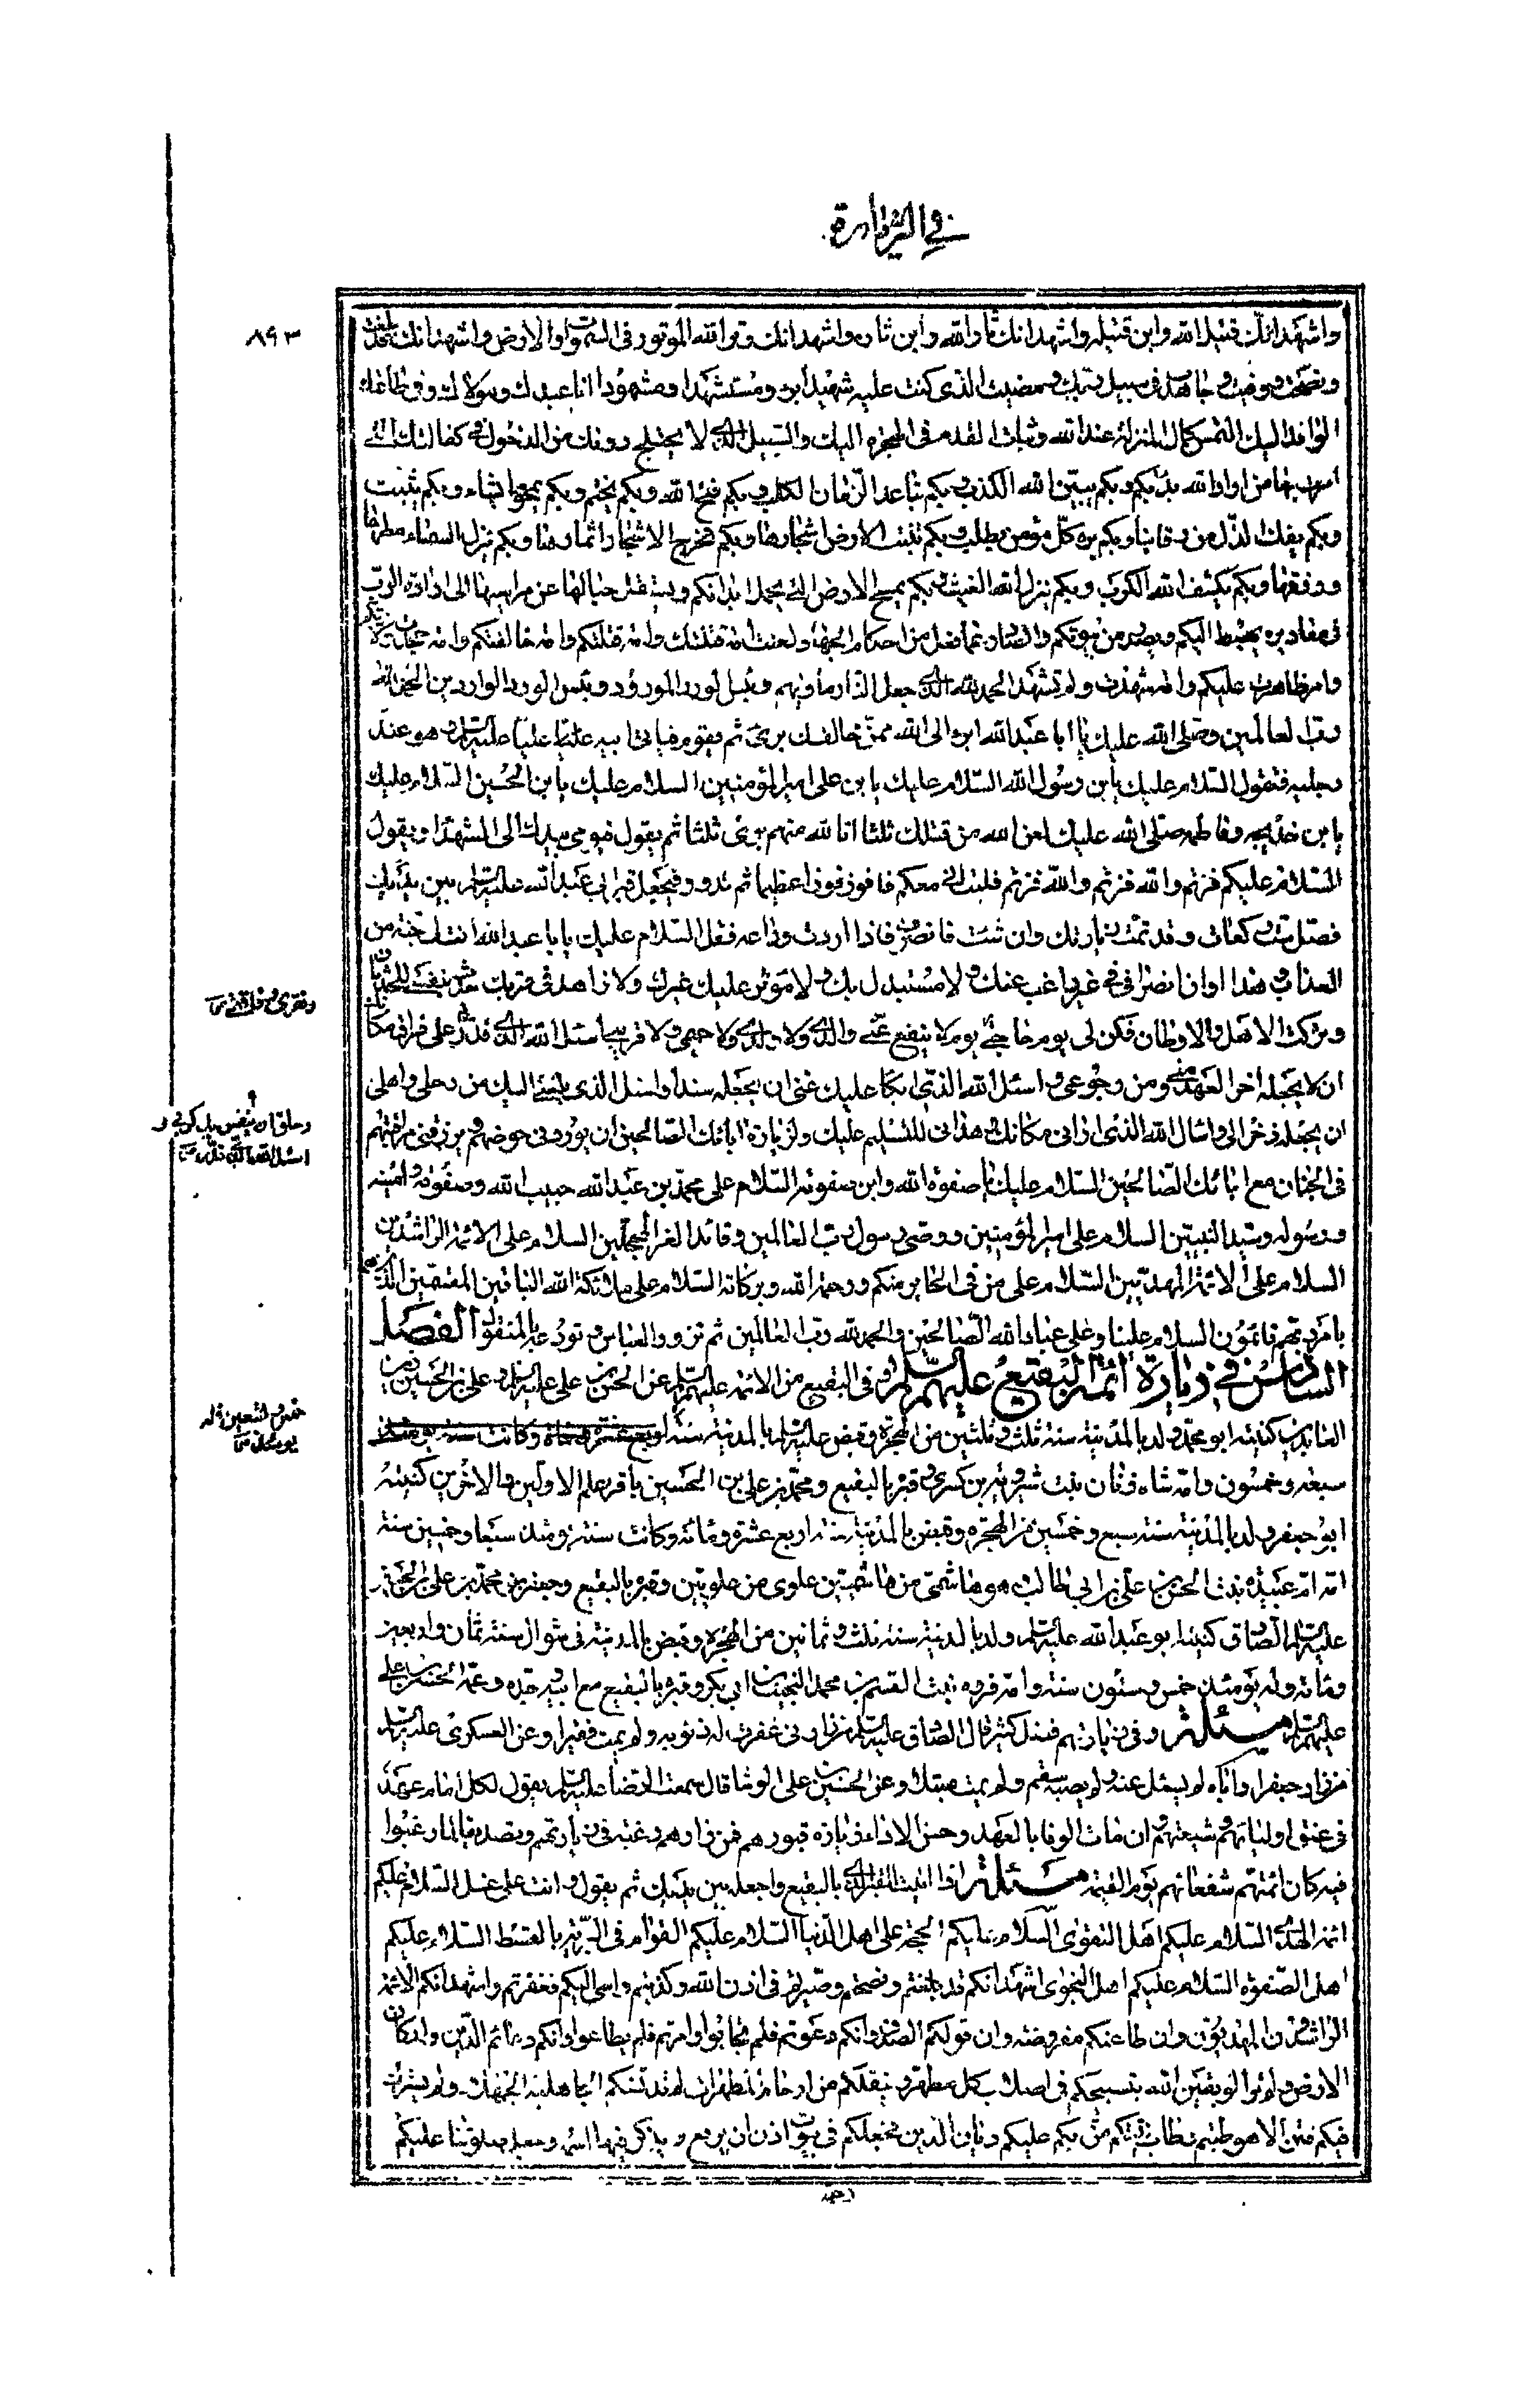 في الزيارة
٨٩٣
واشهد انك قتيل الله وابن قتيله واشهد انك ثار الله وابن ثاره واشهد انك وتر الله الموتور في السموات والارض واشهد انك قد بلغت
ونصحت ووفيت وجاهدت في سبيل ربك ومضيت للذي كنت عليه شهيدا ومستشهدا ومشهودا انا عبدك ومولاك وفي طاعتك
الوافد اليك التمس كمال المنزلة عند الله وثبات القدم في الهجرة اليك والسبيل الذي لا يختلج دونك من الدخول في كفالتك التي
امرت بها من اراد الله بدء بكم وبكم يبين الله الكذب وبكم يباعد الزمان الكلب وبكم فتح الله وبكم يختم وبكم يمحو ما يشاء وبكم يثبت
وبكم يفك الذل من رقابنا وبكم تره كل مؤمن يطلب وبكم تنبت الارض اشجارها وبكم تخرج الاشجار اثمارها وبكم تنزل السماء قطرها
ورزقها وبكم يكشف الله الكرب وبكم ينزل الله الغيث وبكم يسيخ الارض التي تحمل ابدانكم وتستقل جبالها عن مراسيها الى ارادة الرب
في مقاديره يهبط اليكم ويصدر من بيوتكم والصادر عما فصل من احكام العباد لعنت امة قتلتك وامة قتلتكم وامة خالفتكم وامة جحدت ولايتكم
وامة ظاهرت عليكم وامة شهدت ولم تستشهد الحمد لله الذي جعل النار مأويهم وبئس الورد المورود وبئس الورد الواردين الحمد لله
رب العالمين وصلى الله عليك يا ابا عبد الله ابرء الى الله ممن خالفك برئ ثم يقوم فياتي ابنه عليا عليه السلم وهو عند
رجليه فتقول السلام عليك يابن رسول الله السلام عليك يا بن علي امير المؤمنين السلام عليك يا بن الحسين السلام عليك
يا بن خديجه وفاطمه صلى الله عليك لعن الله من قتلك ثلثا انا لله منهم برئ ثلثا ثم يقول فيومي بيدك الى الشهداء ويقول
السلام عليكم فزتم والله فزتم والله فزتم فليت اني معكم فافوز فوزا عظيما ثم تدور فتجعل قبر ابي عبد الله عليه السلم بين يديك
فصل ست ركعات وقد تمت زيارتك وان شئت فانصرف فاذا اردت وداعه فقل السلام عليك يابا عبد الله انت لي جنة من
العذاب هذا اوان انصرافي غير راغب عنك ولا مستبدل بك ولا مؤثر عليك غيرك ولا زاهد في قربك جدت بنفسي للحدثان
وتركت الاهل والاوطان فكن لي يوم حاجتي يوم لا ينفع عني والدي ولا ولدي ولا حميمي ولا قريبي اسئل الله الذي قدر علي فراق مكانك
ان لا يجعله اخر العهد مني ومن رجوعي واسئل الله الذي ابكا عليك عيني ان يجعله سندا واسئل الذي بلغني اليك من رحلي واهلي
ان يجعله ذخرا لي واسال الله الذي اراني مكانك وهداني للتسليم عليك ولزيارة ابائك الصالحين ان يوردني حوضهم ويرزقني مرافقتهم
في الجنان مع ابائك الصالحين السلام عليك يا صفوة الله وابن صفوته السلام على محمد بن عبد الله حبيب الله وصفوته وامينه
ورسوله وسيد النبيين السلام على امير المؤمنين ووصي رسول رب العالمين وقائد الغر المحجلين السلام على الائمة الراشدين
السلام على الائمة المهديين السلام على من في الحاير منكم ورحمة الله وبركاته السلام على ملائكة الله الباقين المقيمين الذين هم
بامر ربهم قائمون السلام علينا وعلى عباد الله الصالحين والحمد لله رب العالمين ثم تزور العباس وتودعه بالمنقول الفصل
السادس في زيارة ائمة البقيع عليهم السلم وفي البقيع من الائمة عليهم السلم عن الحسن بن علي عليه السلم وعلي بن الحسين زين
العابدين كنيته ابو محمد ولد بالمدينة سنة ثلث وثلثين من الهجرة وقبض عليه السلم بالمدينة سنة اربع عشر ومائة وكانت سنة يومئذ
سبعة وخمسون وامه شاه زنان بنت شيرويه بن كسرى وقبره بالبقيع ومحمد بن علي بن الحسين باقر علم الاولين والاخرين كنيته
ابو جعفر ولد بالمدينة سنة سبع وخمسين من الهجرة وقبض بالمدينة سنة اربع عشرة ومائة وكانت سنه يومئذ سبعا وخمسين سنة
امه ام عبيدة بنت الحسن بن علي بن ابي طالب وهو هاشمي من هاشميين علوي من علويين وقبره بالبقيع وجعفر بن محمد بن علي بن الحسين
عليه السلم الصادق كنيته ابو عبد الله عليه السلم ولد بالمدينة سنة ثلث وثمانين من الهجرة وقبض بالمدينة في شوال سنة ثمان واربعين
ومائة وله يومئذ خمس وستون سنة وامه فروه بنت القسم بن محمد النجيب بن ابي بكر وقبره بالبقيع مع ابيه وجده وعمه الحسن بن علي
عليهم السلم مسئلة وفي زيارتهم فضل كثير قال الصادق عليه السلم من زارني غفرت له ذنوبه ولم يمت فقيرا وعن العسكري عليه السلم
من زار جعفرا واباه لم يشتك عينه ولم يصبه سقم ولم يمت مبتلى وعن الحسن بن علي الوشا قال سمعت الرضا عليه السلم يقول لكل امام عهد
في عنق اوليائهم وشيعتهم وان من الوفا بالعهد وحسن الاداء زيارة قبورهم فمن زارهم رغبة في زيارتهم وتصديقا لما رغبوا
فيه كان ائمتهم شفعائهم يوم القيمة مسئلة اذا اتيت القبر الذي بالبقيع واجعله بين يديك ثم يقول وانت على غسل السلام عليكم
ائمة الهدى السلام عليكم اهل التقوى السلام عليكم الحجة على اهل الدنيا السلام عليكم القوام في البرية بالقسط السلام عليكم
اهل الصفوة السلام عليكم اهل النجوى اشهد انكم قد بلغتم ونصحتم وصبرتم في ذات الله وكذبتم واسي اليكم فغفرتم واشهد انكم الائمة
الراشدون المهديون وان طاعتكم مفروضة وان قولكم الصدق وانكم دعوتم فلم تجابوا وامرتم فلم يطاعوا وانكم دعائم الدين واركان
الارض لم تزالوا بعين الله ينسخكم في اصلاب كل مطهر وينقلكم من ارحام المطهرات لم تدنسكم الجاهلية الجهلاء ولم يشرك
فيكم فتن الاهواء طبتم وطاب منبتكم من بكم عليكم ديان الدين فجعلكم في بيوت اذن ان يرفع ويذكر فيها اسمه وجعل صلوتنا عليكم